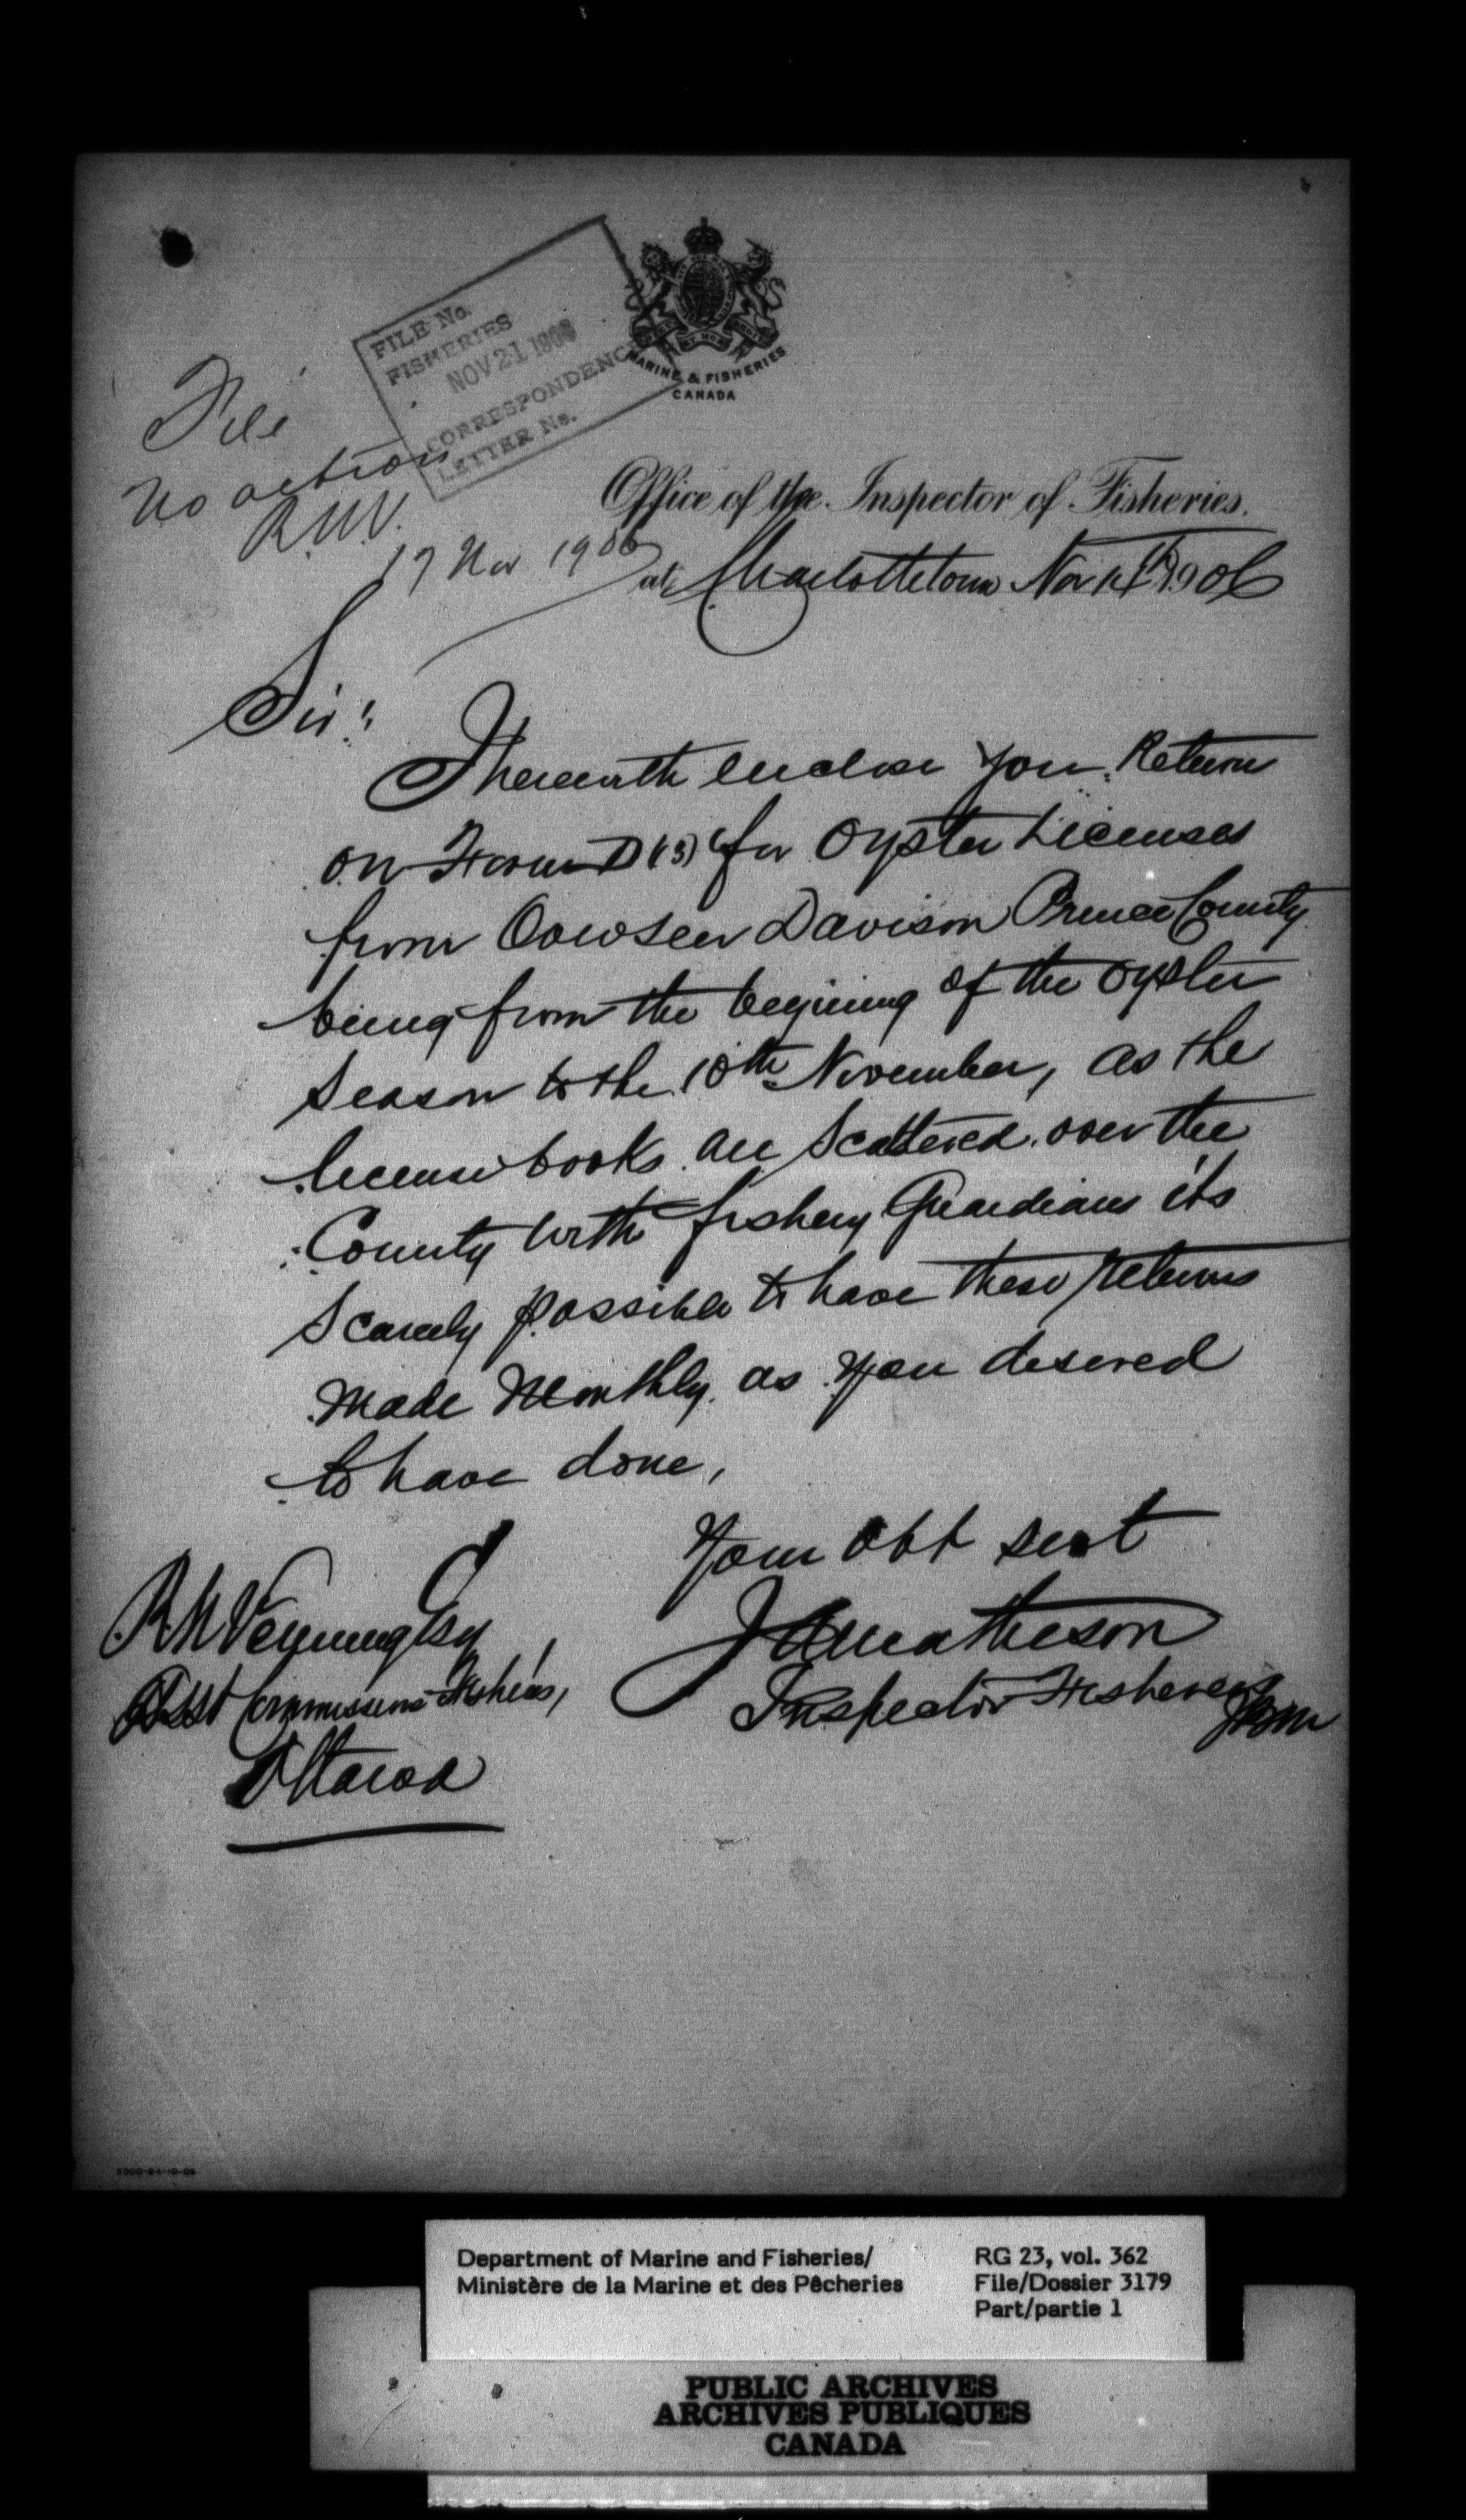 FILE No.
FISHERIES
NOV 21 1906
CORRESPONDENCE
LETTER No.
MARINE & FISHERIES
CANADA
File
No action
R.N.V.
17 Nov 1906
Office of the Inspector of Fisheries.
at Charlottetown Nov 1906
Sir:
I herewith enclose you Return
on Form D (3) for Oyster Licenses
from Overseer Davison Prince County
being from the begining of the oyster
Season to the 10th November, as the
license books are Scattered over the
County with fishery Guardians its
Scarcely possible to have these returns
Made Monthly as you desired
to have done,
Your Obt Servt
J A Matheson
Inspector Fisheries
R N Venning Esq
Asst Commissioner Fisheries,
Ottawa
5000-24-10-05
Department of Marine and Fisheries/
Ministère de la Marine et des Pêcheries
RG 23, vol. 362
File/Dossier 3179
Part/partie 1
PUBLIC ARCHIVES
ARCHIVES PUBLIQUES
CANADA